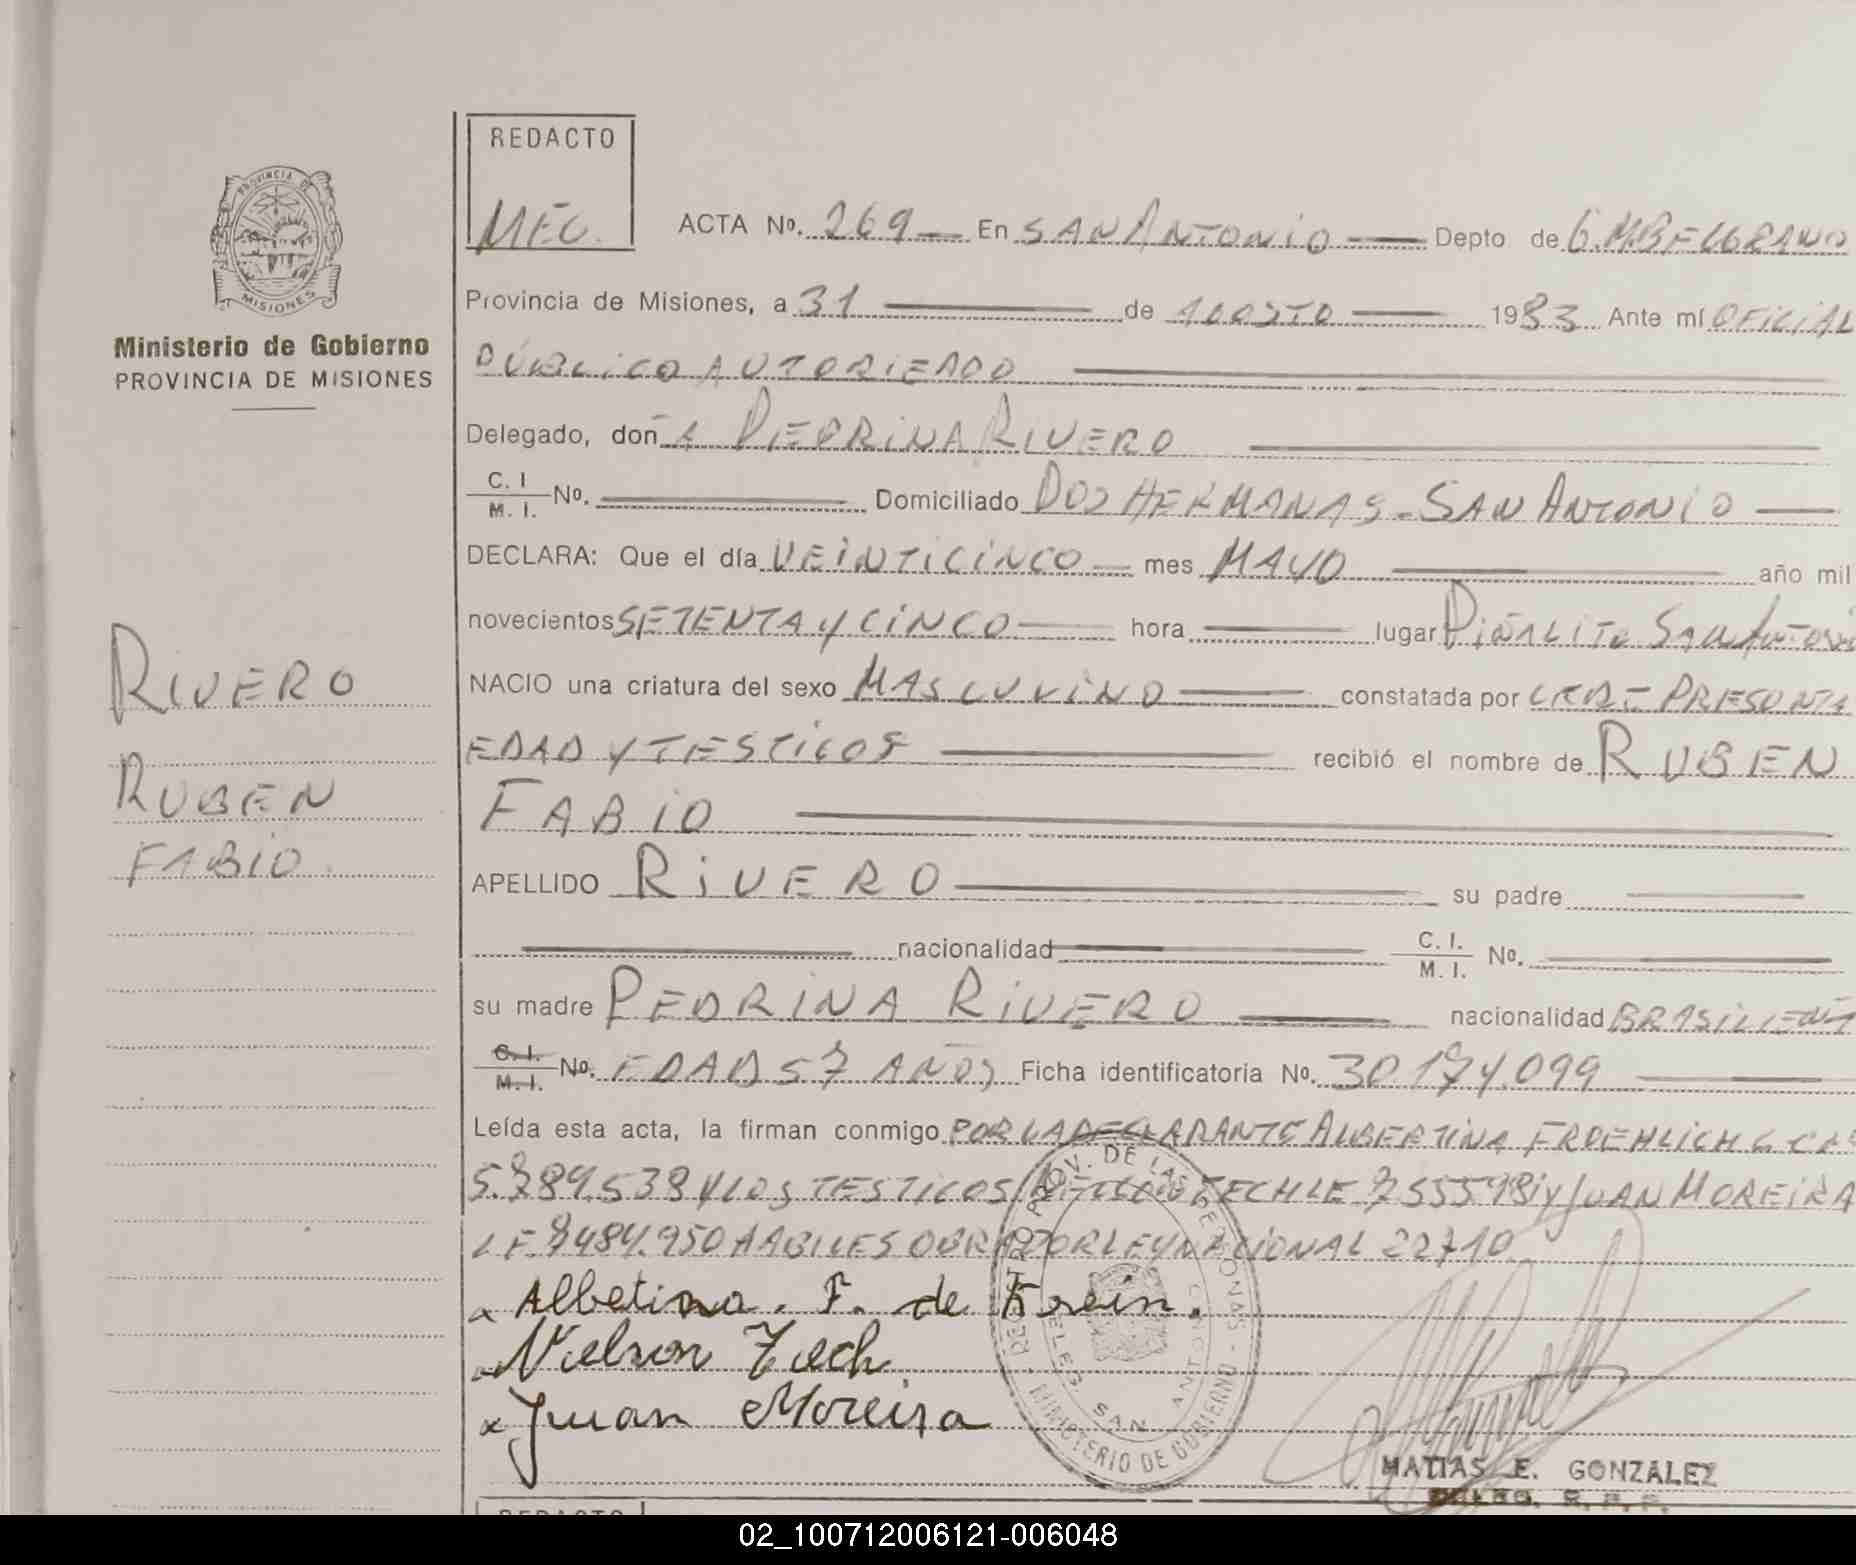 REDACTO
MEC.
PROVINCIA DE
MISIONES
Ministerio de Gobierno
PROVINCIA DE MISIONES
ACTA Nº. 269 En SAN ANTONIO Depto de G.M.BELGRANO
Provincia de Misiones, a 31 de AGOSTO 1983 Ante mí OFICIAL
PÚBLICO AUTORIZADO
Delegado, doñA PEDRINA RIVERO
C. I / M. I. Nº. Domiciliado DOS HERMANAS - SAN ANTONIO
DECLARA: Que el día VEINTICINCO mes MAYO año mil
novecientos SETENTA Y CINCO hora lugar PIÑALITO SAN ANTONIO
NACIO una criatura del sexo MASCULINO constatada por CERT. PRESUNTA
EDAD Y TESTIGOS recibió el nombre de RUBEN
FABIO
APELLIDO RIVERO su padre
nacionalidad C. I. / M. I. Nº.
su madre PEDRINA RIVERO nacionalidad BRASILEÑA
C. I. / M. I. Nº. EDAD 57 AÑOS Ficha identificatoria Nº. 30.174.099
Leída esta acta, la firman conmigo POR LA DECLARANTE ALBERTINA FROEHLICH
5.789.538 Y LOS TESTIGOS 7555981 Y JUAN MOREIRA
L E. 7484.950 HABILES OBRA POR LEY NACIONAL 22710
x Albetina. F. de Frein.
Nelson Zech
x Juan Moreira
REGISTRO PROV. DE LAS PERSONAS - MINISTERIO DE GOBIERNO -
SAN ANTONIO
MATIAS E. GONZALEZ
RIVERO
RUBEN
FABIO
REDACTO
02_100712006121-006048